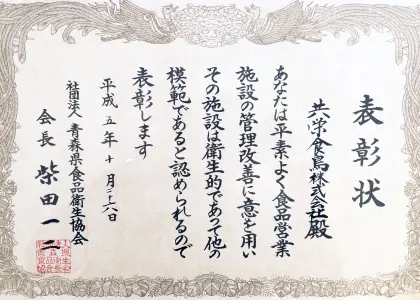 表彰状
共栄食鳥株式会社殿
あなたは平素よく食品営業
施設の管理改善に意を用い
その施設は衛生的であって他の
模範であると認められるので
表彰します
平成五年十月二十六日
社団法人 青森県食品衛生協会
会長 柴田一二